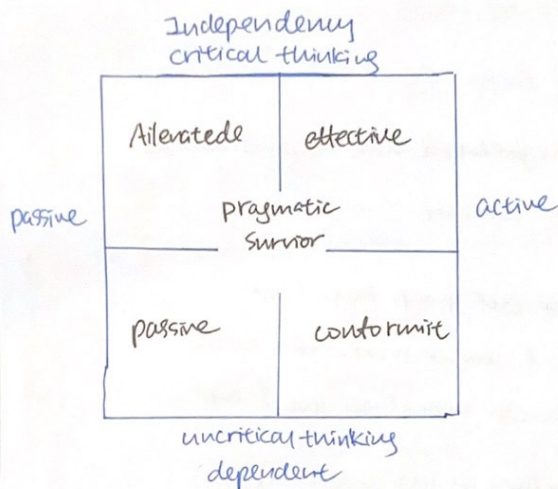 Independency
critical thinking
Aileratede
effective
passive
pragmatic
active
survior
passive
conformist
uncritical thinking
dependent